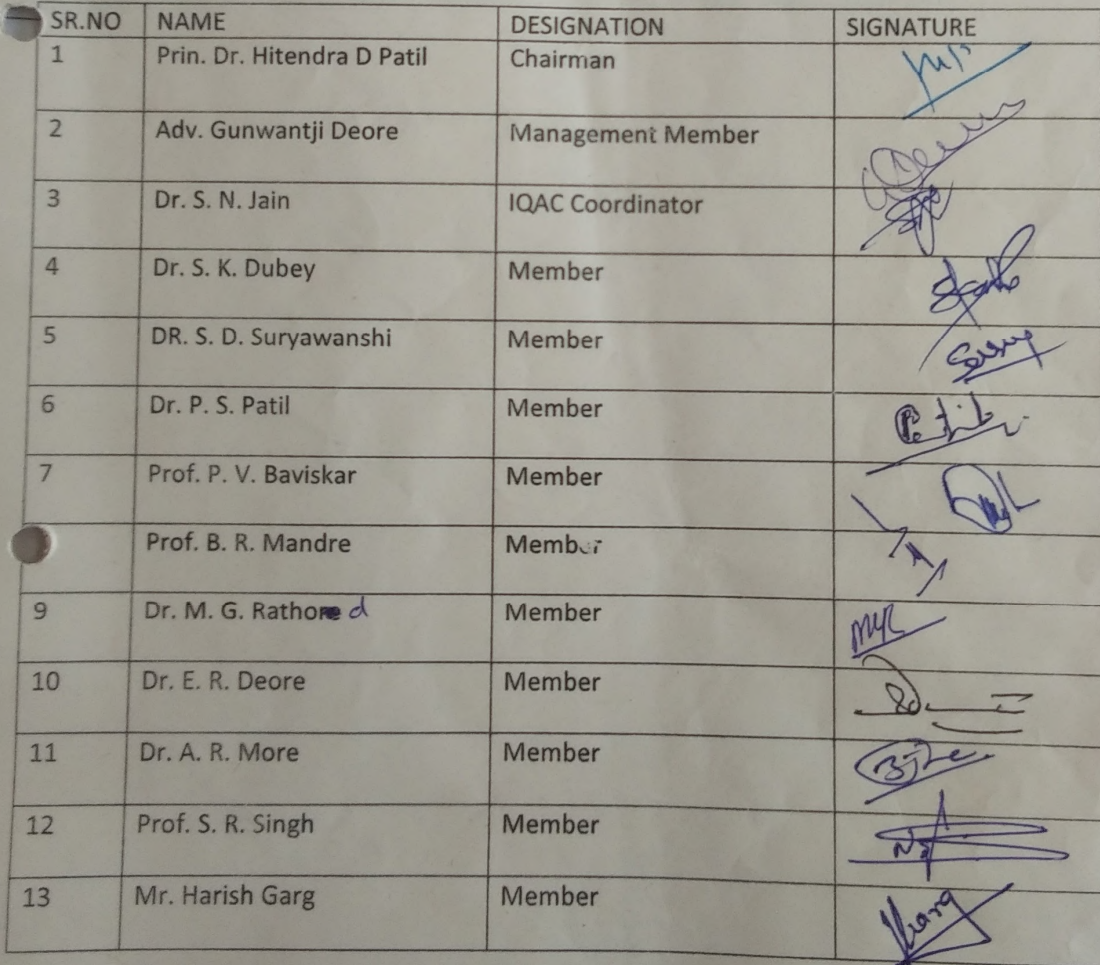 SR.NO NAME DESIGNATION SIGNATURE
1 Prin. Dr. Hitendra D Patil Chairman
2 Adv. Gunwantji Deore Management Member
3 Dr. S. N. Jain IQAC Coordinator
4 Dr. S. K. Dubey Member
5 DR. S. D. Suryawanshi Member
6 Dr. P. S. Patil Member
7 Prof. P. V. Baviskar Member
Prof. B. R. Mandre Member
9 Dr. M. G. Rathod Member
10 Dr. E. R. Deore Member
11 Dr. A. R. More Member
12 Prof. S. R. Singh Member
13 Mr. Harish Garg Member